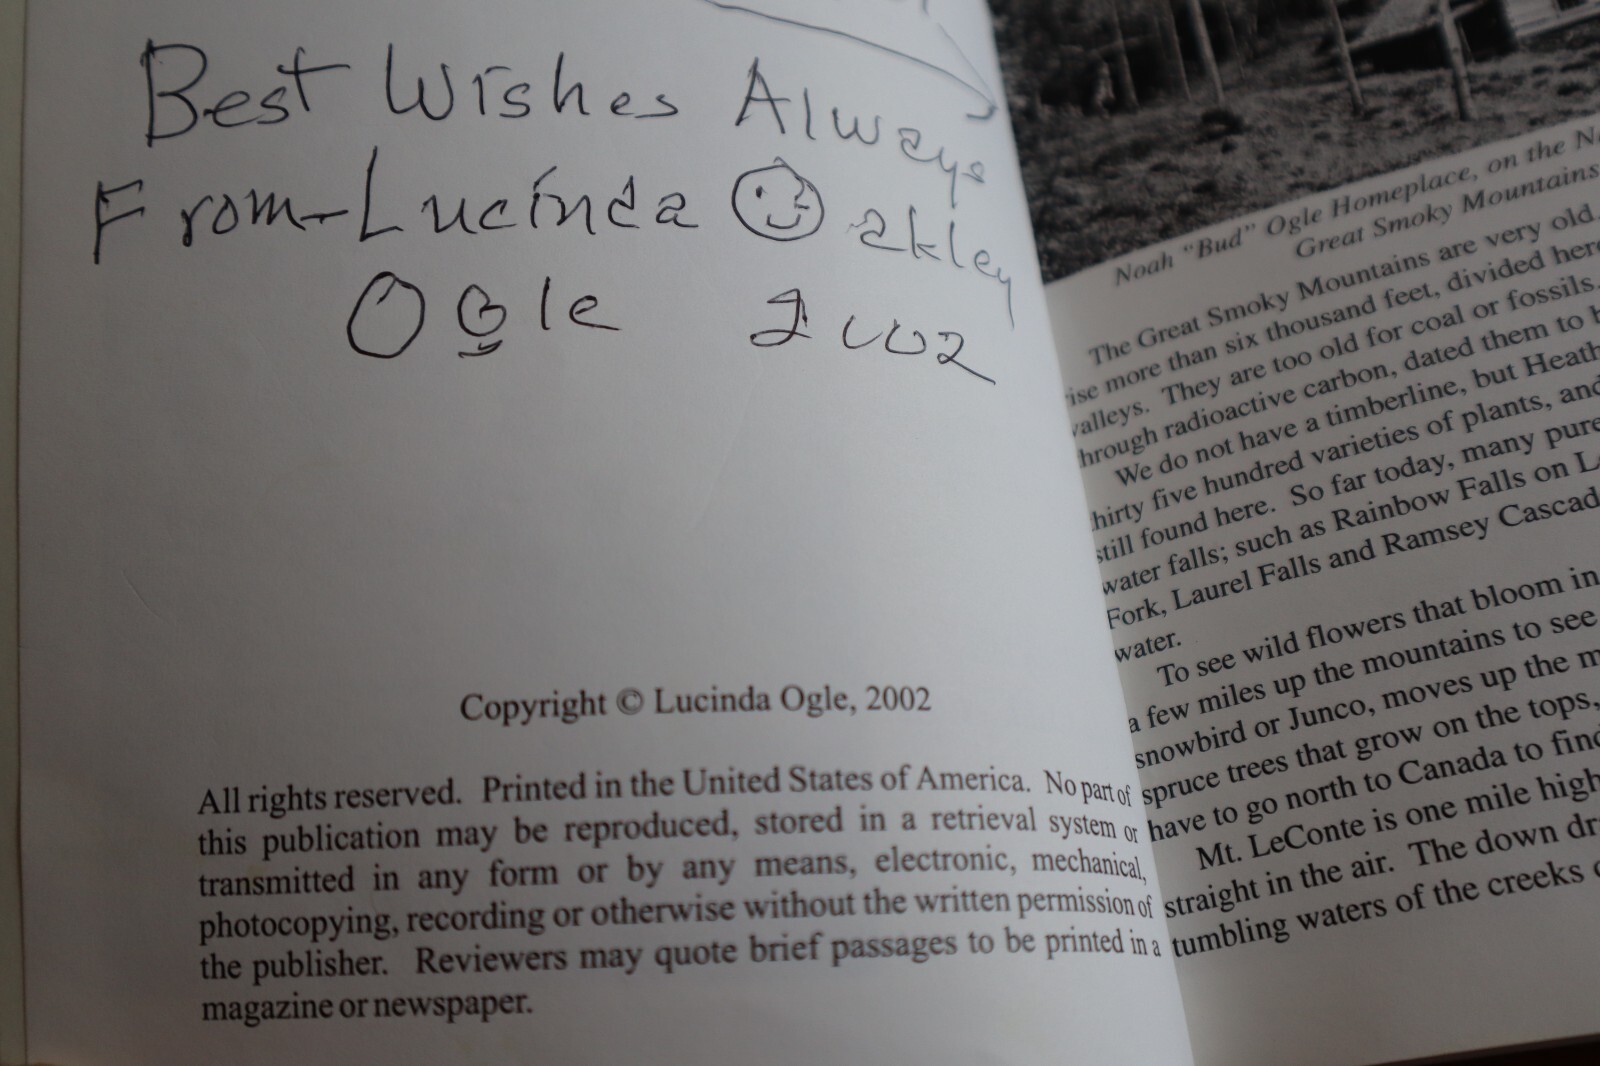 Best Wishes Always
From-Lucinda Oakley
Ogle 2002
Copyright © Lucinda Ogle, 2002
All rights reserved. Printed in the United States of America. No part of
this publication may be reproduced, stored in a retrieval system or
transmitted in any form or by any means, electronic, mechanical,
photocopying, recording or otherwise without the written permission of
the publisher. Reviewers may quote brief passages to be printed in a
magazine or newspaper.
Noah "Bud" Ogle Homeplace, on the
Great Smoky Mountains
The Great Smoky Mountains are very old.
rise more than six thousand feet, divided here
valleys. They are too old for coal or fossils.
through radioactive carbon, dated them to
We do not have a timberline, but Heath
thirty five hundred varieties of plants, and
still found here. So far today, many pure
water falls; such as Rainbow Falls on
Fork, Laurel Falls and Ramsey Cascad
water.
To see wild flowers that bloom in
a few miles up the mountains to see
snowbird or Junco, moves up the
spruce trees that grow on the tops,
have to go north to Canada to find
Mt. LeConte is one mile high
straight in the air. The down
tumbling waters of the creeks